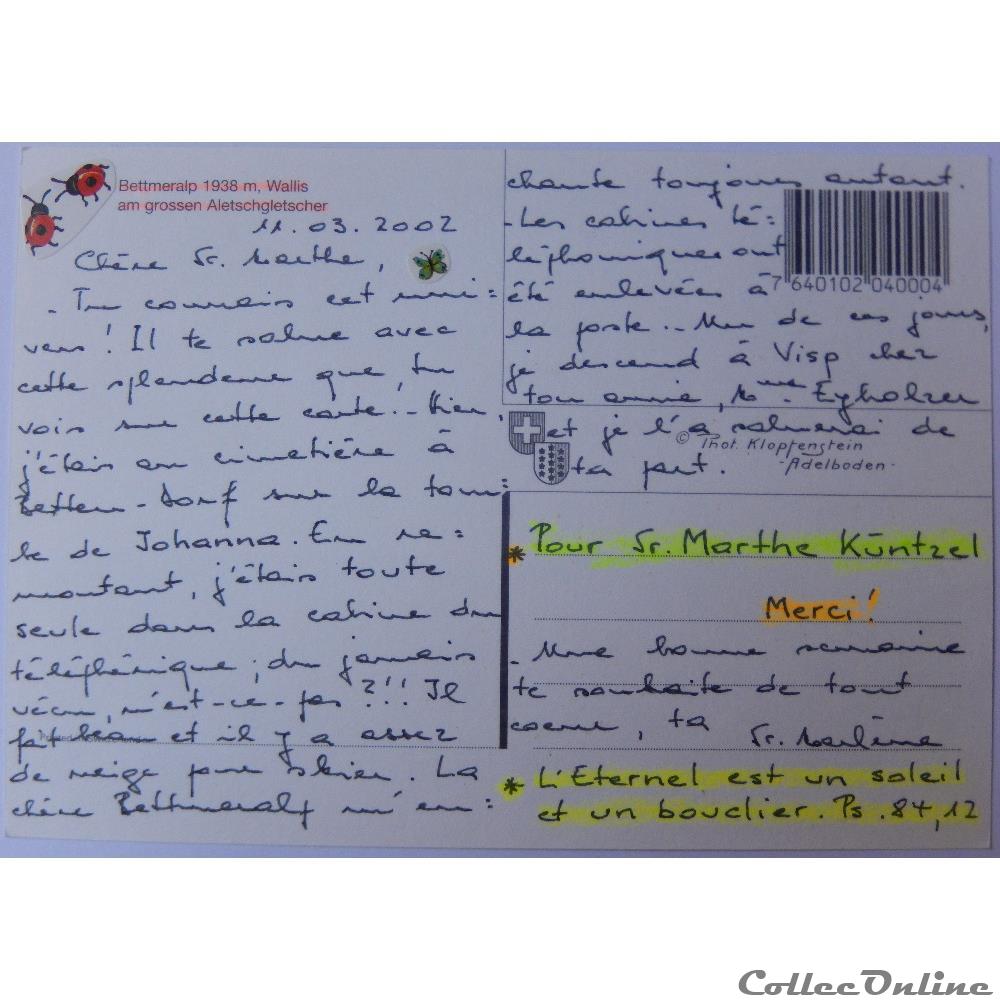 Bettmeralp 1938 m, Wallis
am grossen Aletschgletscher
11.03.2002
Chère Sr. Marthe,
- Tu connais cet uni=
vers! Il te salue avec
cette splendeur que tu
vois sur cette carte. - Hier,
j'étais au cimetière à
Betten-Dorf sur la tom=
be de Johanna. En re=
montant, j'étais toute
seule dans la cabine du
téléphérique, du jamais
vécu, n'est-ce-pas?!! Il
fait beau et il y a assez
de neige pour skier. La
chère Bettmeralp m'en=
chante toujours autant.
- Les cabines té=
léphoniques ont
été enlevées à
la poste. - Un de ces jours,
je descend à Visp chez
ton amie, Mme Eyholzer
et je l'a saluerai de
ta part.
7 640102 040004
© Phot. Klopfenstein
- Adelboden -
* Pour Sr. Marthe Küntzel
Merci!
- Une bonne semaine
te souhaite de tout
coeur, ta
Sr. Marlène
* L'Eternel est un soleil
et un bouclier. Ps. 84,12
CollecOnline